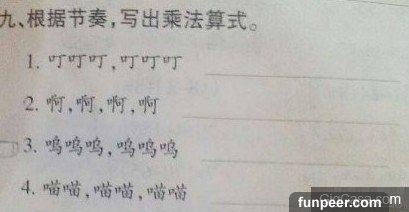 九、根据节奏,写出乘法算式。
1. 叮叮叮,叮叮叮
2. 啊,啊,啊,啊
3. 呜呜呜,呜呜呜
4. 喵喵,喵喵,喵喵
funpeer.com